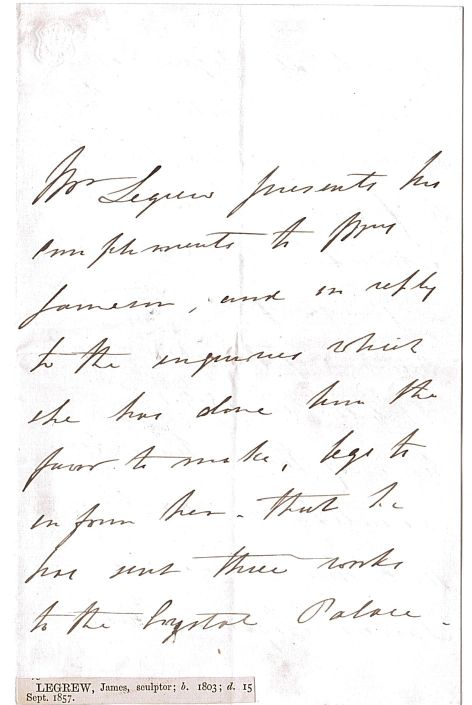 Mr Legrew presents his
compliments to Mrs
Jameson, and in reply
to the inquiries which
she has done him the
favor to make, begs to
inform her - that he
has sent three works
to the Crystal Palace -
LEGREW, James, sculptor; b. 1803; d. 15
Sept. 1857.